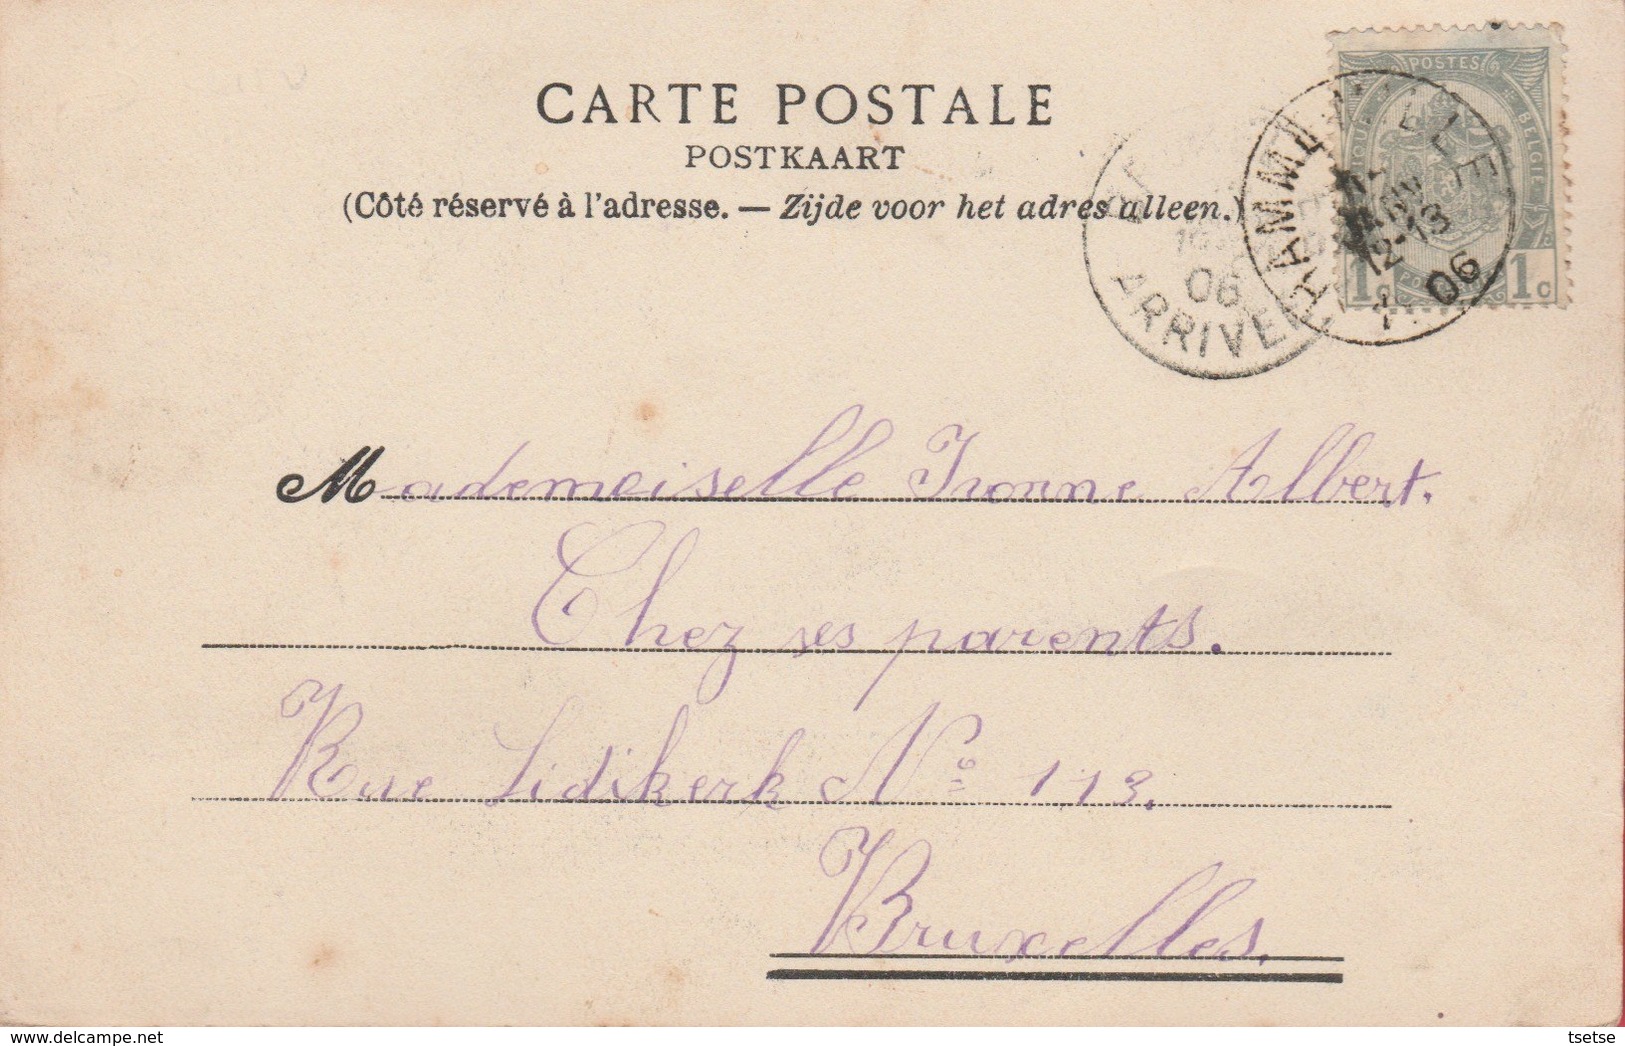 CARTE POSTALE
POSTKAART
(Côté réservé à l'adresse. — Zijde voor het adres alleen.)
POSTES
BELGIE
1c 1c
HAMME-MILLE
12-13
06
06
ARRIVEE
Mademoiselle Ivonne Albert.
Chez ses parents.
Rue Lidikerk No 113.
Bruxelles.
delcampe.net
tsetse